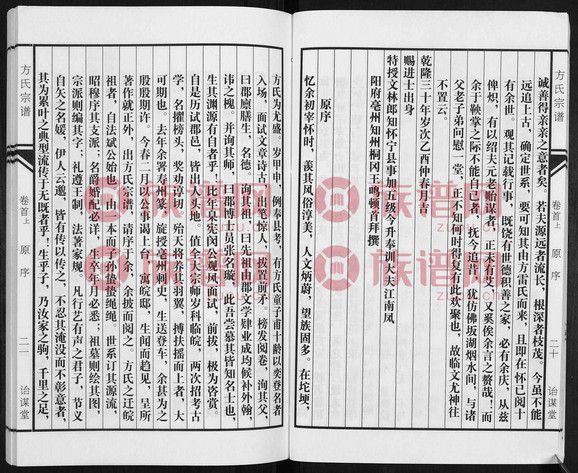 诚善得亲亲之意者矣。若夫源远者流长，根深者枝茂，今虽不能
远追上古，确定世系，要可知其由方雷氏而来，且即在怀已阅十
有余世，观其记载行事，既饶有世德积善之家，必有余庆，从兹
俾炽，有以绍夫元老贻谋者，正未有艾，又奚俟余言之赘哉！而
余于鞅掌之际不能自已者，抚今追昔，犹仿佛坂湖烟水间，与诸
父老子弟问慰一堂，正不知何时得复有此欢聚也，故临文尤神往
不置云。
乾隆三十年岁次乙酉仲春月吉
赐进士出身
特授文林郎知怀宁县事加五级今升奉训大夫江南凤
阳府亳州知州桐冈王鸣顿首拜撰
原序
忆余初宰怀时，羡其风俗淳美，人文炳蔚，望族固多。在坨埂，
方氏为尤盛，岁甲申，余奉县考，有方氏童子甫十龄以奕登名者
入场，面试文章诗古，出笔惊人，拔置前矛，榜发阅卷，询其父，
曰郡廪膳生，名德。询其学，曰本诸家训，由郡文学肄业成均候补外翰，
讳之槐。并询其师，曰郡博士员张名璇，此吾尝慕其皆知名士也，
生其渊源有自者乎！比年泉宪闵公观风面试，前拔，极为咨赏。
自是历试郡邑，皆出人头地。值全大宗师岁科临皖，两次招考古
学，名擢榜头，奖劝谆切，殆天将养其羽翼，搏扶摇而上者，大
可期也。去年余署寿州篆，旋授亳州刺史，生送登车，余甚为之
殷殷期许。今春二月以公事谒上台，寓皖邸，生闻而趋见，呈所
著作就正外，出方氏宗谱，请序于余，余披而阅之。方氏之迁皖
祖者，自法斌公始也，由一本而子孙蛰蛰绳绳。世系订其源流，
昭穆序其支派，名爵婚配必详，生卒年月必悉；祖墓则绘其图，
宗派则编其字；礼遵王制，法著家规。凡行艺有声之君子，节义
自矢之名媛，伊人云邈，皆有传以传之，不忍其淹没而不彰意者，
其为累叶之典型流传于无既者乎！生乎子，乃汝家之驹，千里之足，
方氏宗谱
卷首上
原序
二十
诒谋堂
方氏宗谱
卷首上
原序
二一
诒谋堂
族谱网
族谱网